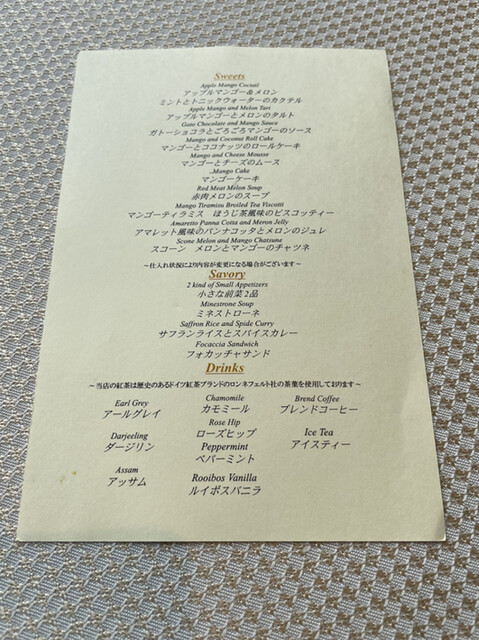 Sweets
Apple Mango Coctail
アップルマンゴー&メロン
ミントとトニックウォーターのカクテル
Apple Mango and Melon Tart
アップルマンゴーとメロンのタルト
Gato Chocolate and Mango Sauce
ガトーショコラとごろごろマンゴーのソース
Mango and Coconut Roll Cake
マンゴーとココナッツのロールケーキ
Mango and Cheese Mousse
マンゴーとチーズのムース
Mango Cake
マンゴーケーキ
Red Meat Melon Soup
赤肉メロンのスープ
Mango Tiramisu Broiled Tea Viscotti
マンゴーティラミス ほうじ茶風味のビスコッティー
Amaretto Panna Cotta and Meron Jelly
アマレット風味のパンナコッタとメロンのジュレ
Scone Melon and Mango Chatsune
スコーン メロンとマンゴーのチャツネ
～仕入れ状況により内容が変更になる場合がございます～
Savory
2 kind of Small Appetizers
小さな前菜2品
Minestrone Soup
ミネストローネ
Saffron Rice and Spide Curry
サフランライスとスパイスカレー
Focaccia Sandwich
フォカッチャサンド
Drinks
～当店の紅茶は歴史のあるドイツ紅茶ブランドのロンネフェルト社の茶葉を使用しております～
Earl Grey Chamomile Brend Coffee
アールグレイ カモミール ブレンドコーヒー
Rose Hip
Darjeeling ローズヒップ Ice Tea
ダージリン Peppermint アイスティー
ペパーミント
Assam Rooibos Vanilla
アッサム ルイボスバニラ